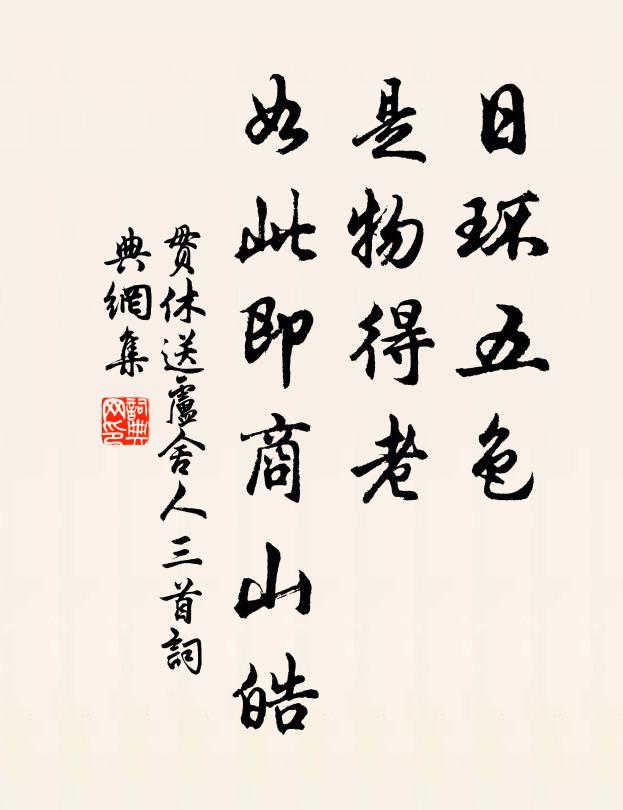 日环五色
是物得老
如此即商山皓
贯休送盧舍人三首詞
典網集
詞典网印